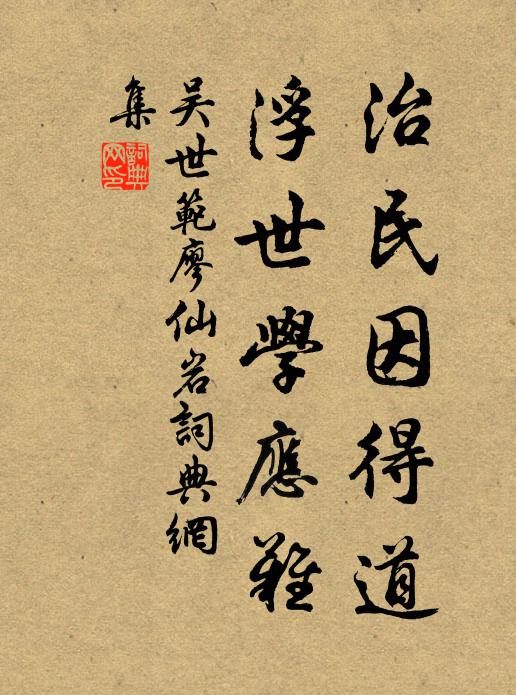 治民因得道
浮世學應難
吳世範廖仙岩詞典網
集
詞典
网印